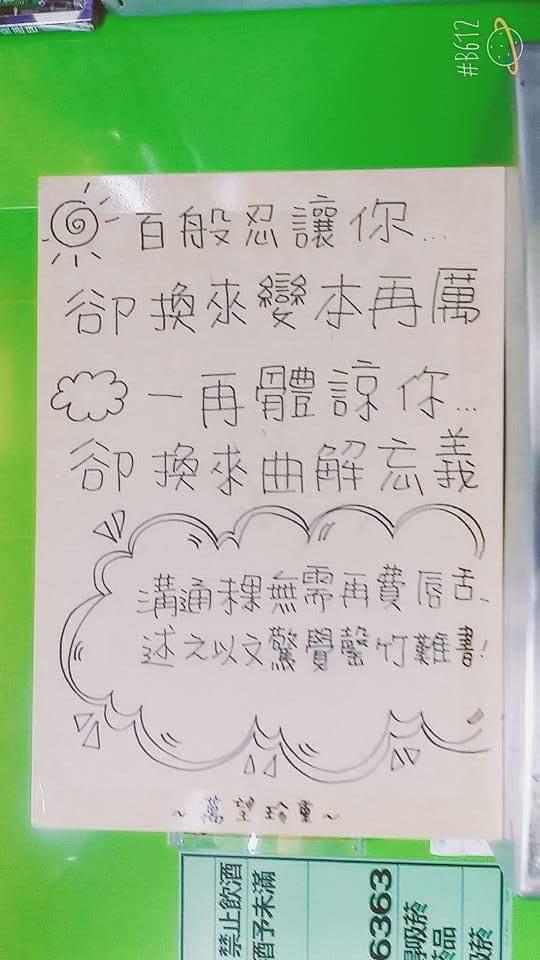 #B612
百般忍讓你...
卻換來變本再厲
一再體諒你...
卻換來曲解忘義
溝通裸無需再費唇舌..
述之以文驚覺罄竹難書!
~萬望珍重~
禁止飲酒
酒予未滿
6363
吸菸
菸品
吸菸